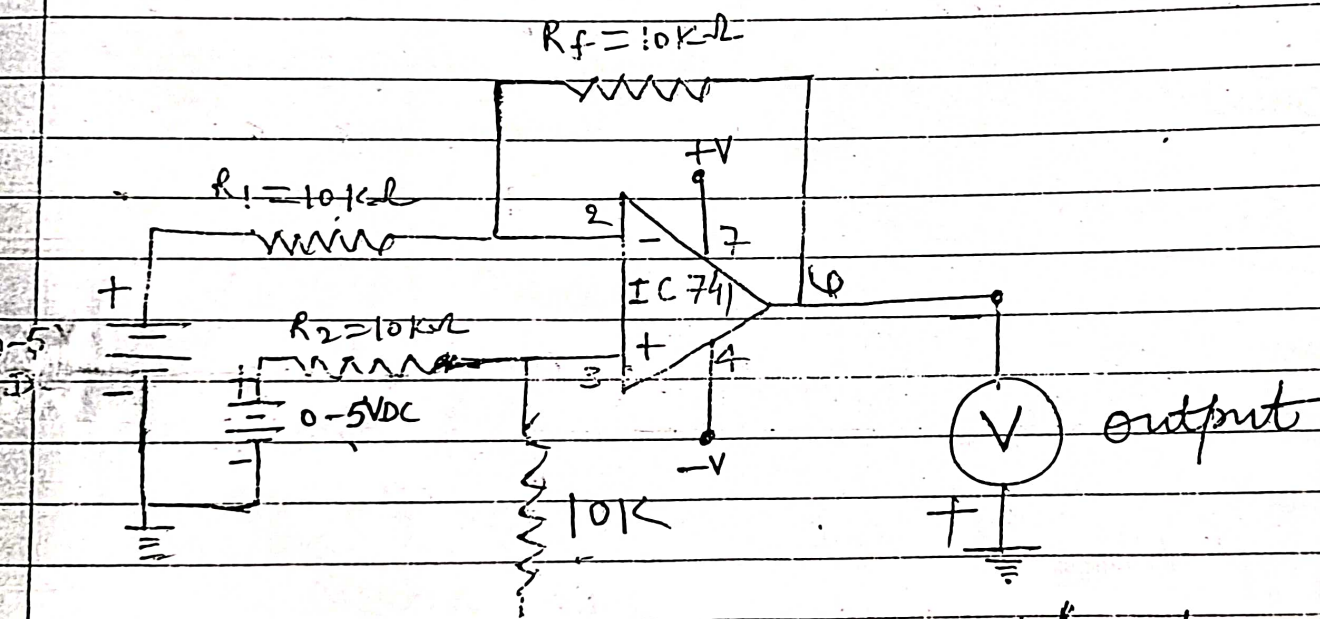 Rf = 10KΩ
+V
R1 = 10KΩ
2
-
7
IC 741
6
+
-5V
R2 = 10KΩ
+
3
4
-
+
0-5VDC
-
-
-V
V
output
10K
+